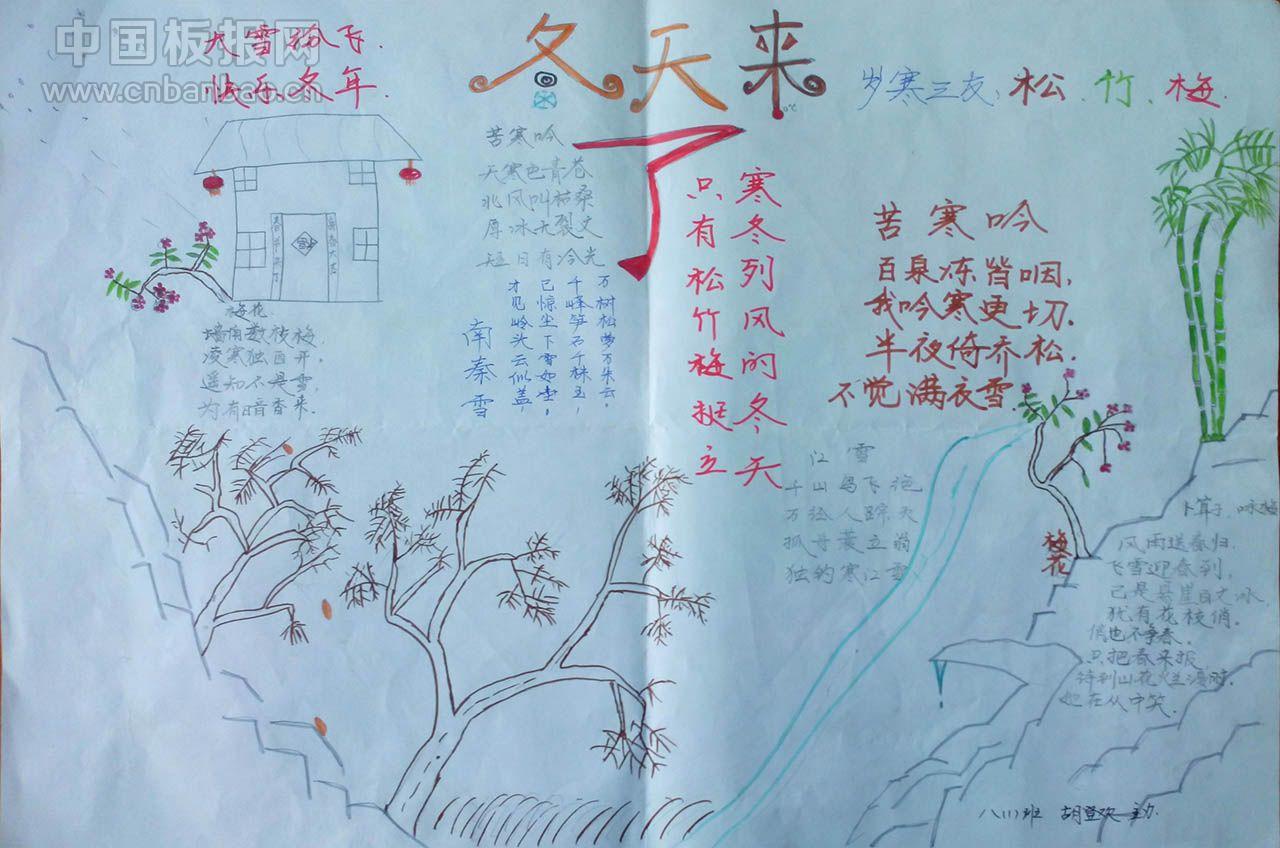 中国板报网
www.cnbanbao.cn
大雪纷飞.
快乐冬年.
冬天来
了
岁寒三友:松、竹、梅.
苦寒吟
天寒色青苍
北风叫枯桑
厚冰无裂文
短日有冷光
万树松萝万朵云,
千峰笋石千株玉,
已惊尘下雪如尘。
才见岭头云似盖,
南秦雪
寒冬列风的冬天
只有松竹梅挺立
苦寒吟
百泉冻皆咽,
我吟寒更切.
半夜倚乔松.
不觉满衣雪.
梅花
墙角数枝梅,
凌寒独自开,
遥知不是雪,
为有暗香来.
江雪
千山鸟飞绝
万径人踪灭
孤舟蓑立翁
独钓寒江雪
梅花
卜算子.咏梅
风雨送春归.
飞雪迎春到,
已是悬崖百丈冰,
犹有花枝俏.
俏也不争春.
只把春来报,
待到山花烂漫时.
她在丛中笑.
八(11)班 胡登欢